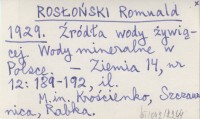 ROSŁOŃSKI Romuald
1929. Źródła wody żywią-
cej. Wody mineralne w
Polsce. — Ziemia 14, nr
12: 189-192, il.
M.in. Krościenko, Szczaw-
nica, Rabka.